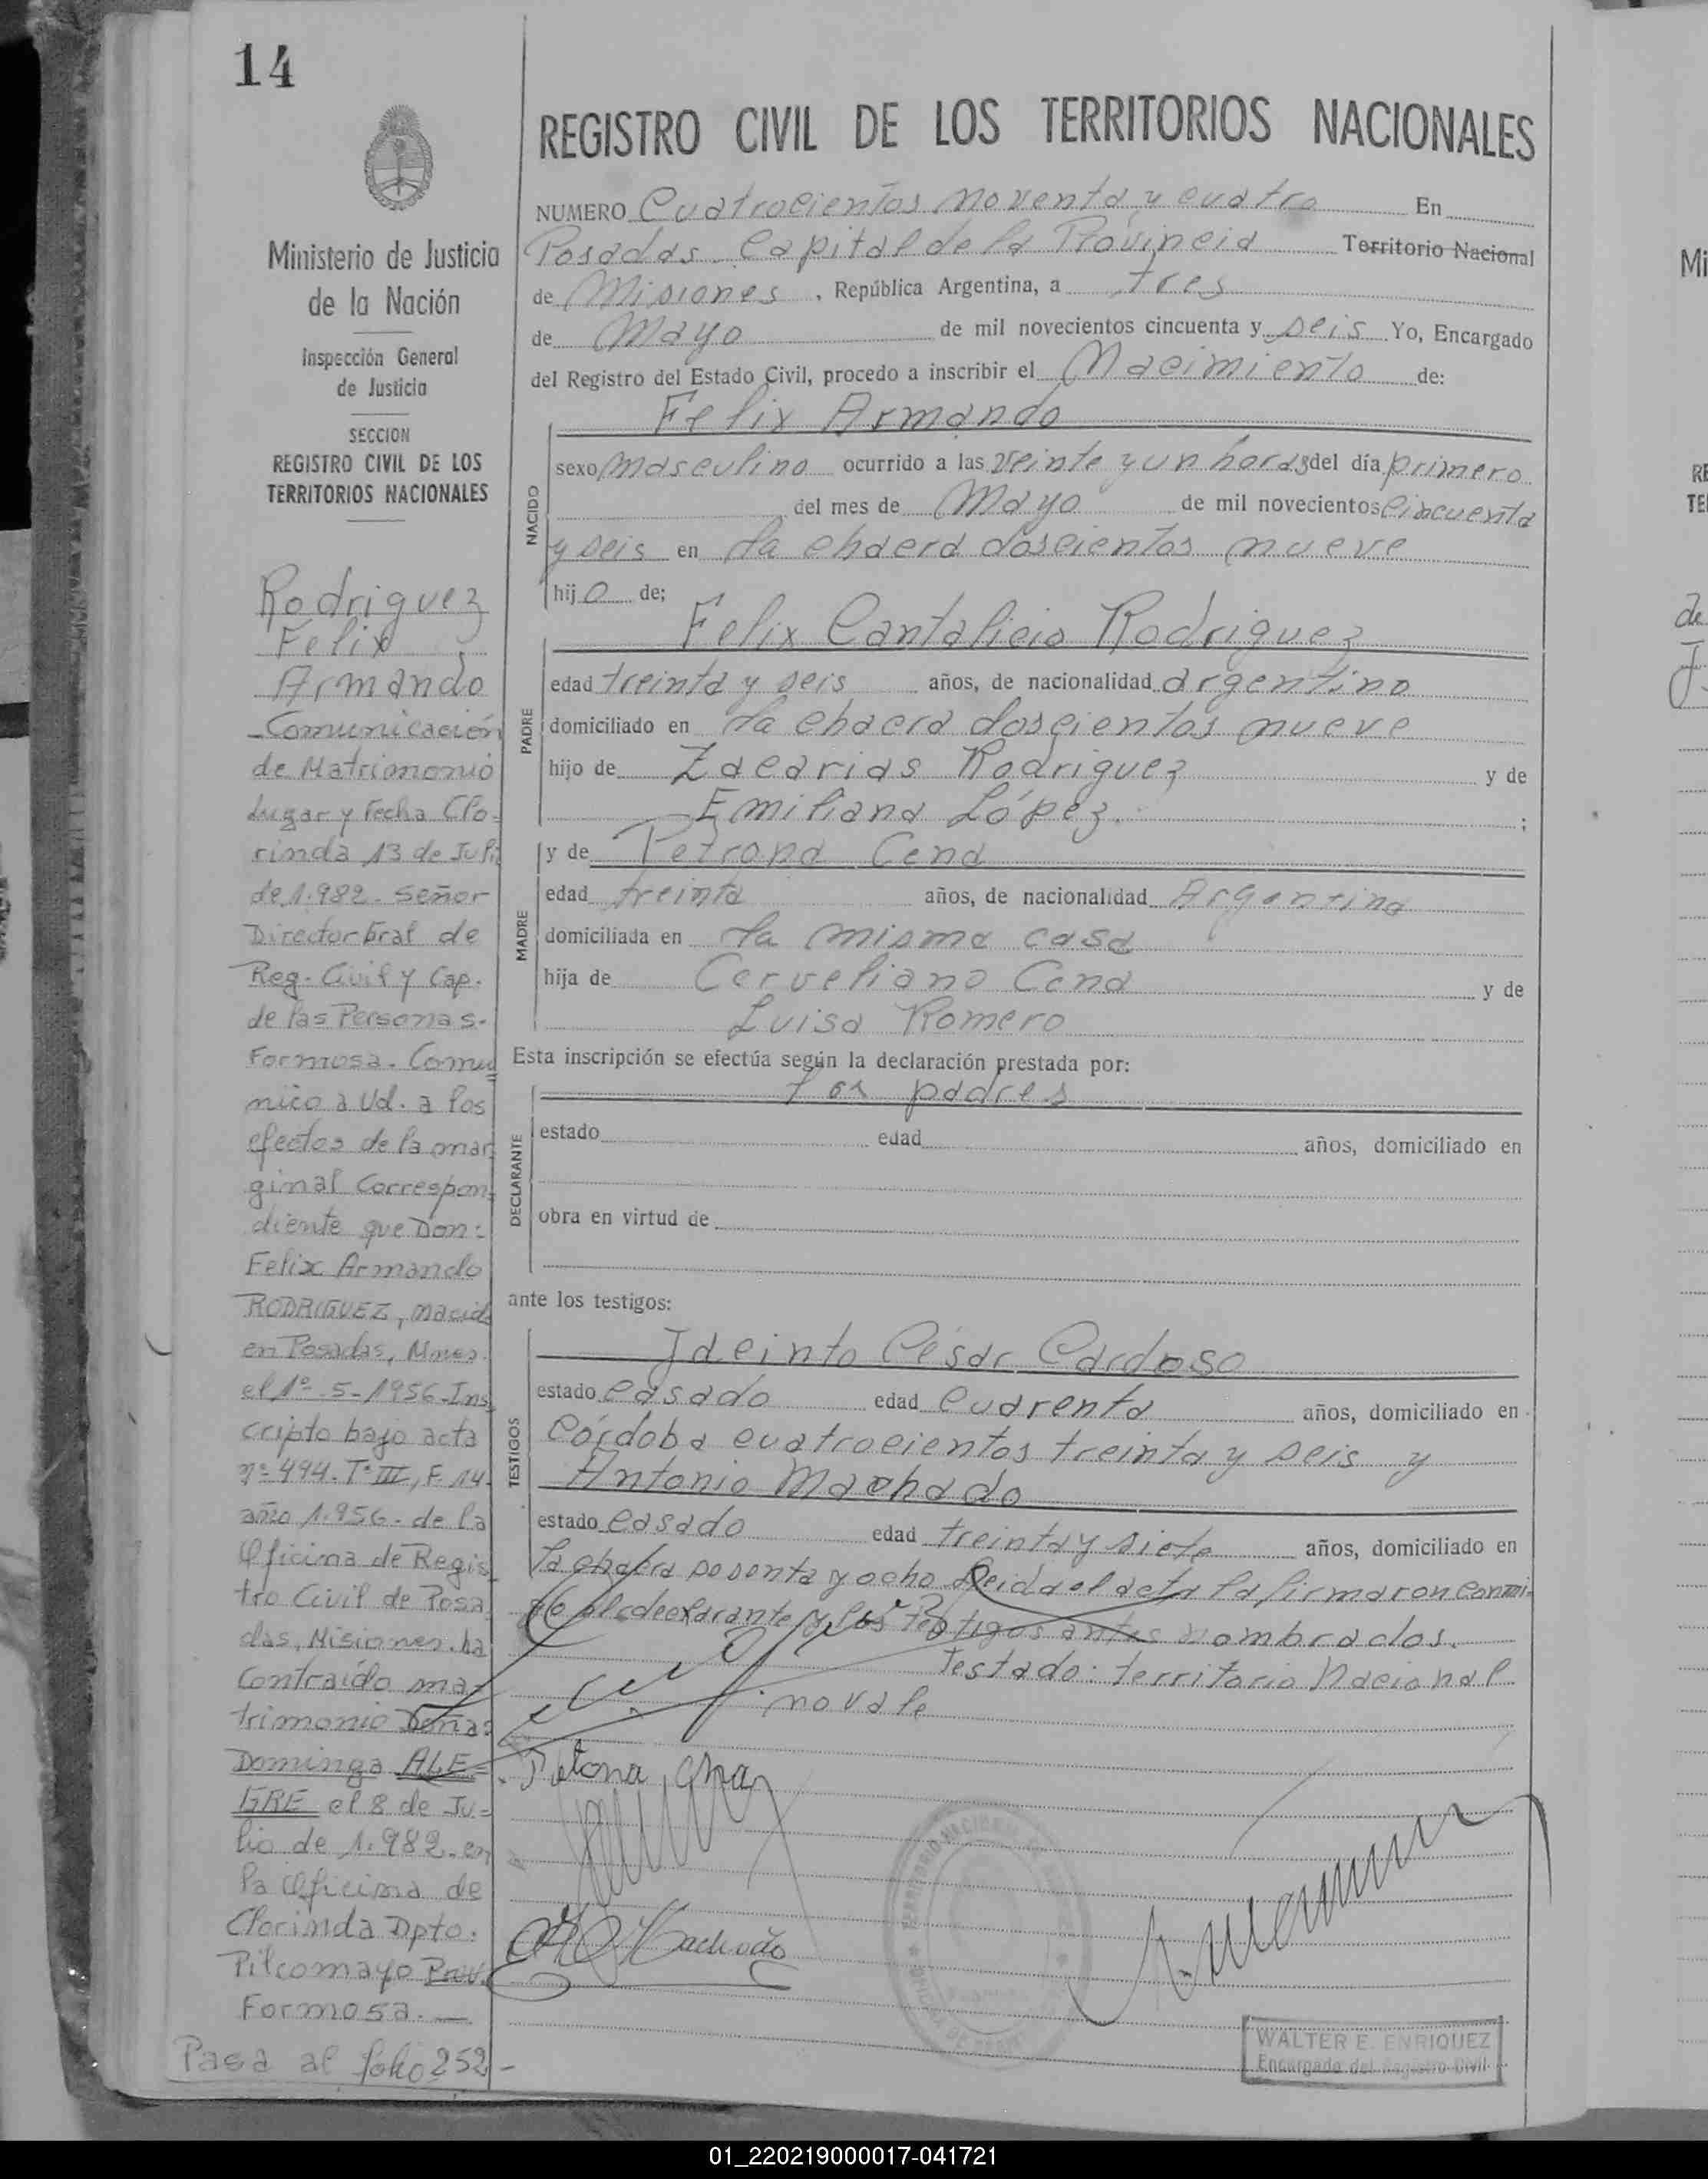 14
Ministerio de Justicia
de la Nación
Inspección General
de Justicia
SECCION
REGISTRO CIVIL DE LOS
TERRITORIOS NACIONALES
Rodriguez
Felix
Armando
Comunicación
de Matrimonio
Lugar y Fecha Clo-
rinda 13 de Juli
de 1.982. Señor
Director Gral de
Reg. Civil y Cap.
de las Personas.
Formosa. Comu
nico a Ud. a los
efectos de la mar
ginal Correspon
diente que Don:
Felix Armando
RODRIGUEZ, nacido
en Posadas, Mnes.
el 1º-5-1956. Ins
cripto bajo acta
nº 494. Tº III, F. 14
año 1.956. de la
Oficina de Regis
tro Civil de Posa
das, Misiones. ha
Contraído ma-
trimonio Doña:
Dominga ALE-
GRE el 8 de Ju-
lio de 1.982. en
la Oficina de
Clorinda Dpto.
Pilcomayo Prov.
Formosa. —
Pasa al folio 252 -
REGISTRO CIVIL DE LOS TERRITORIOS NACIONALES
NUMERO Cuatrocientos noventa y cuatro En
Posadas Capital de la Provincia Territorio Nacional
de Misiones, República Argentina, a tres
de Mayo de mil novecientos cincuenta y seis Yo, Encargado
del Registro del Estado Civil, procedo a inscribir el Nacimiento de:
Felix Armando
NACIDO
sexo masculino ocurrido a las veinte y un horas del día primero
del mes de Mayo de mil novecientos cincuenta
y seis en la chacra doscientos nueve
hijo de;
Felix Cantalicio Rodriguez
PADRE
edad treinta y seis años, de nacionalidad argentino
domiciliado en la chacra doscientos nueve
hijo de Zacarias Rodriguez y de
Emiliana López. ;
y de Petrona Cena
MADRE
edad treinta años, de nacionalidad Argentina
domiciliada en la misma casa
hija de Cerveliano Cena y de
Luisa Romero
Esta inscripción se efectúa según la declaración prestada por:
los padres
DECLARANTE
estado edad años, domiciliado en
obra en virtud de
ante los testigos:
Jacinto César Cardoso
TESTIGOS
estado casado edad cuarenta años, domiciliado en
Córdoba cuatrocientos treinta y seis y
Antonio Machado
estado casado edad treinta y siete años, domiciliado en
la chacra sesenta y ocho Leida el acta la firmaron conmi-
go el declarante y los testigos antes nombrados.
Testado: territorio Nacional
no vale
Petrona Cena
Machado
WALTER E. ENRIQUEZ
Encargado del Registro Civil
01_220219000017-041721